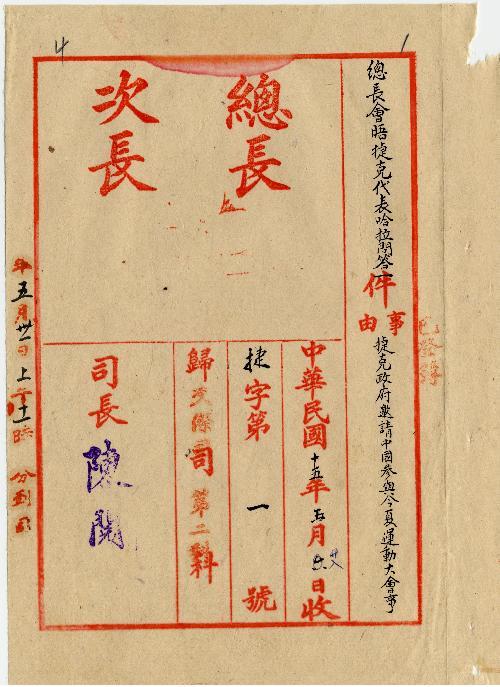 總長會晤捷克代表哈拉問答一件
事由
捷克政府邀請中國參與今夏運動大會事
總長
次長
中華民國十五年五月廿六日收
捷字第一號
歸交際司第二科
司長
陳
年五月廿一日上午十一時 分到司
已登簿